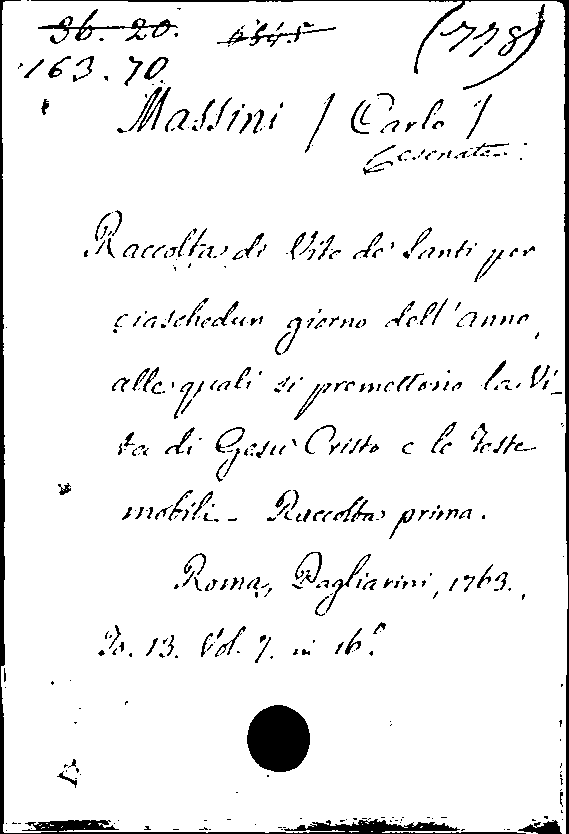 36. 20. 6345 (778)
163.70.
Massini / Carlo /
Cesenate.
Raccolta di Vite de' Santi per
ciaschedun giorno dell'anno,
alle quali si premettono la Vi-
ta di Gesù Cristo e le Feste
mobili - Raccolta prima.
Roma, Pagliarini, 1763.
To. 13. Vol. 7. in 16.º